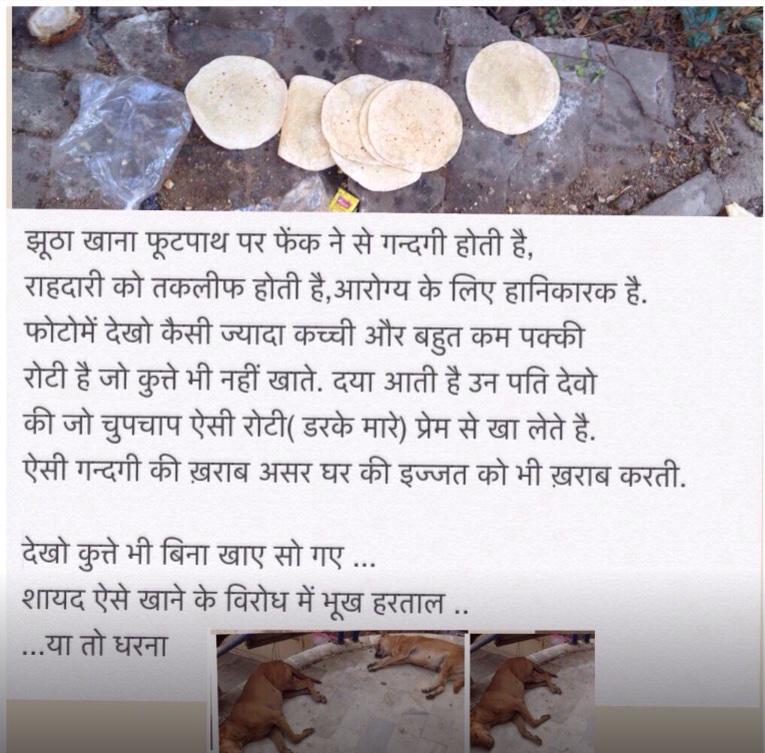 झूठा खाना फूटपाथ पर फेंक ने से गन्दगी होती है,
राहदारी को तकलीफ होती है,आरोग्य के लिए हानिकारक है.
फोटोमें देखो कैसी ज्यादा कच्ची और बहुत कम पक्की
रोटी है जो कुत्ते भी नहीं खाते. दया आती है उन पति देवो
की जो चुपचाप ऐसी रोटी( डरके मारे) प्रेम से खा लेते है.
ऐसी गन्दगी की ख़राब असर घर की इज्जत को भी ख़राब करती.
देखो कुत्ते भी बिना खाए सो गए ...
शायद ऐसे खाने के विरोध में भूख हरताल ..
...या तो धरना